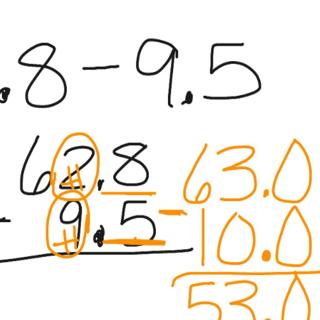 .8 - 9.5
62.8
- 9.5
63.0
- 10.0
53.0